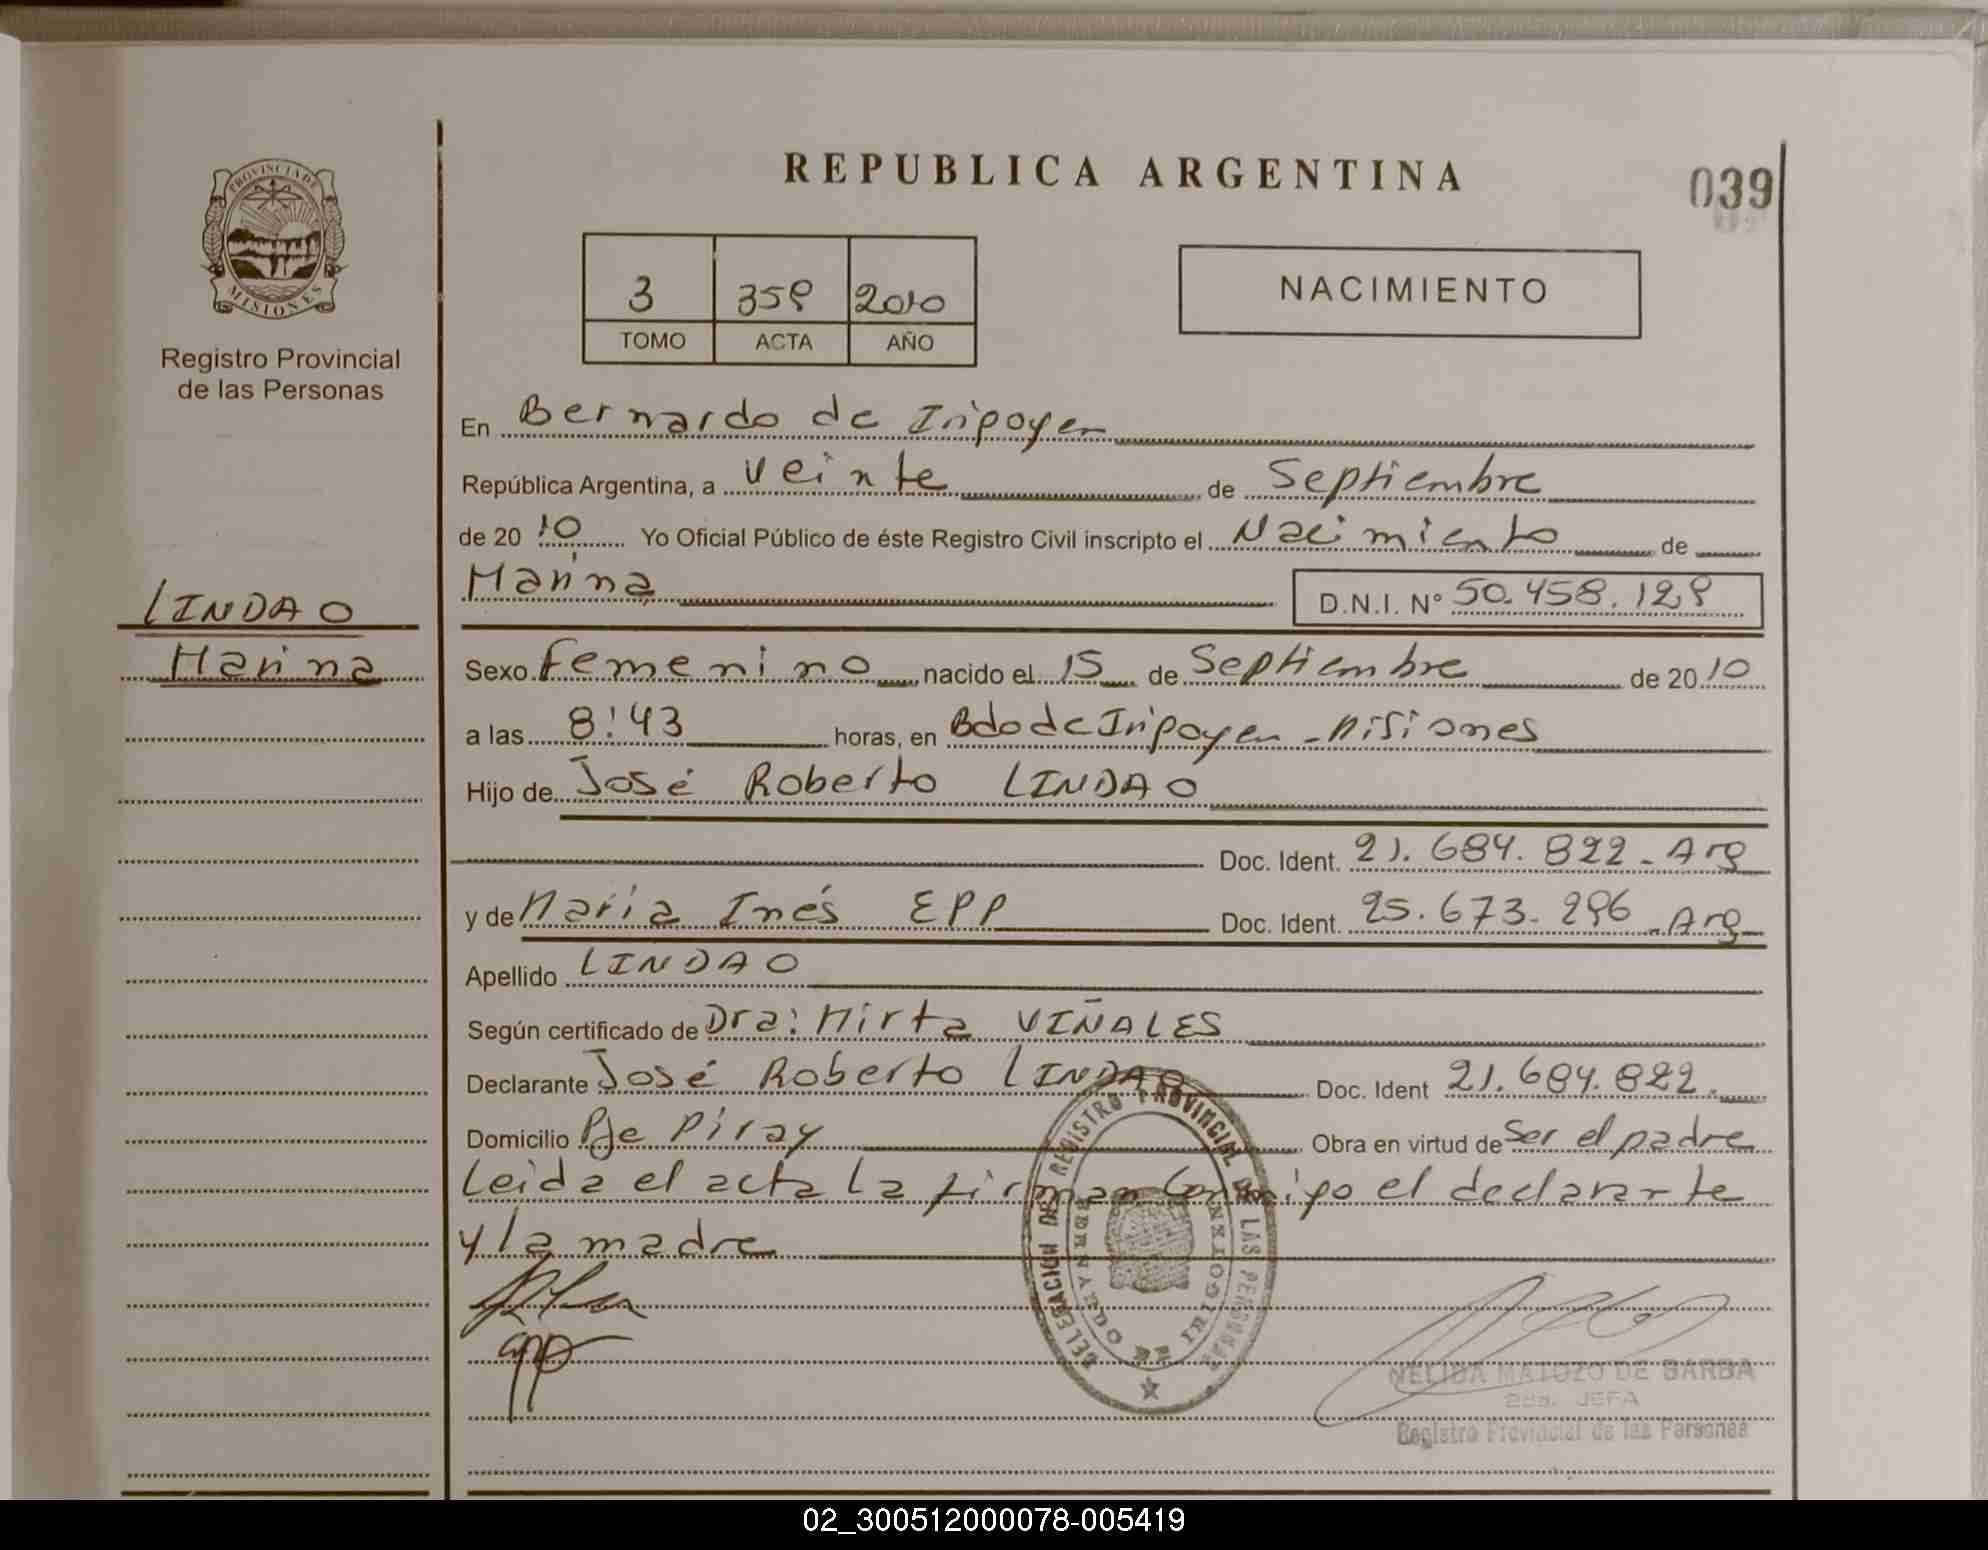 REPUBLICA ARGENTINA
039
PROVINCIA DE
MISIONES
Registro Provincial
de las Personas
3 359 2010
TOMO ACTA AÑO
NACIMIENTO
En Bernardo de Irigoyen
República Argentina, a veinte de Septiembre
de 20 10 Yo Oficial Público de éste Registro Civil inscripto el Nacimiento de
Marina D.N.I. N° 50.458.129
LINDAO
Marina
Sexo Femenino nacido el 15 de Septiembre de 20 10
a las 8:43 horas, en Bdo de Irigoyen - Misiones
Hijo de José Roberto LINDAO
Doc. Ident. 21.684.822 - Arg
y de María Inés EPP Doc. Ident. 25.673.296 - Arg
Apellido LINDAO
Según certificado de Dra: Mirta VIÑALES
Declarante José Roberto LINDAO Doc. Ident 21.684.822.
Domicilio Pje Piray Obra en virtud de Ser el padre
Leida el acta la firman Conmigo el declarante
y la madre
DELEGACION DEL REGISTRO PROVINCIAL DE LAS PERSONAS
BERNARDO DE IRIGOYEN
NELIDA MATOZO DE BARBA
2da. JEFA
Registro Provincial de las Personas
02_300512000078-005419